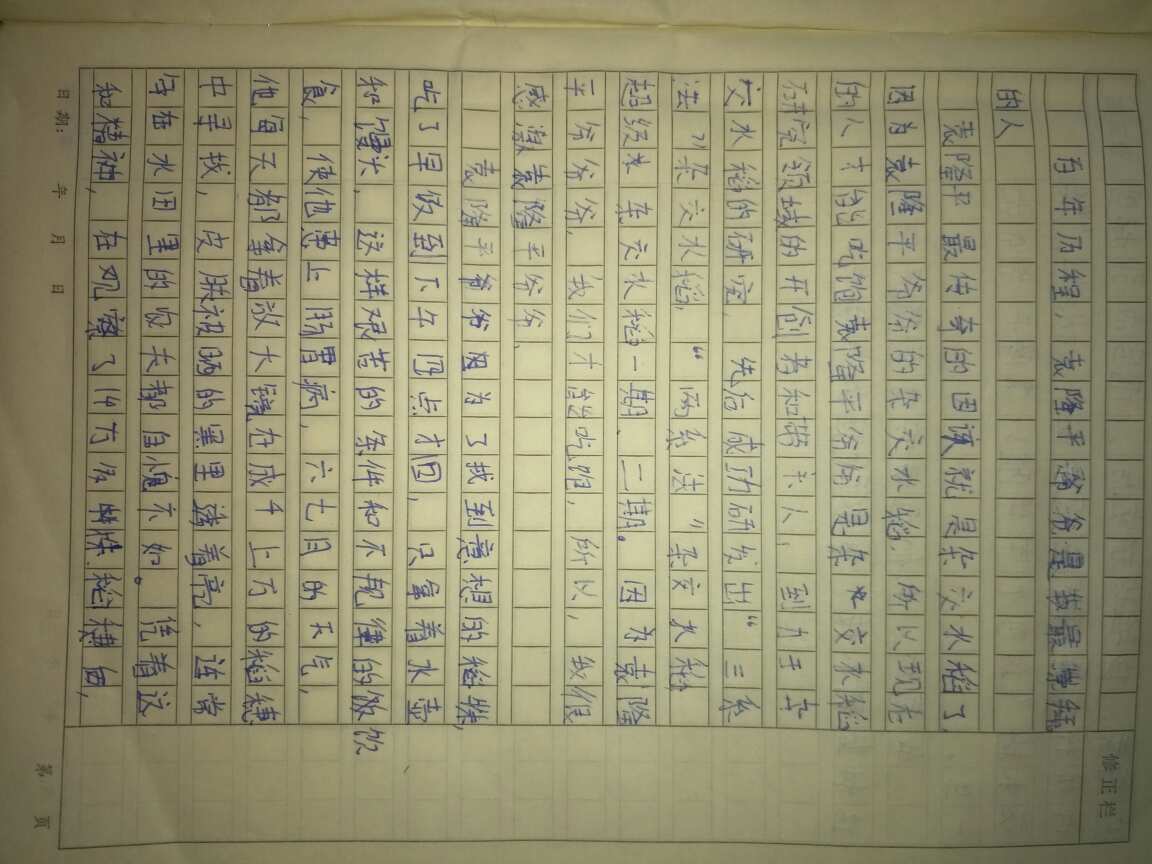 百年历程，袁隆平爷爷是我最崇拜
的人
袁隆平最传奇的因该就是杂交水稻了
因为袁隆平爷爷的杂交水稻，所以现在
的人才能吃饱袁隆平爷爷是杂交水稻
研究领域的开创者和带头人，到力于杂
交水稻的研究，先后成功研发出“三系
法”杂交水稻，“两系法”杂交水稻
超级杂交水稻一期、二期。因为袁隆
平爷爷爷，我们才能吃饱，所以，我很
感激袁隆平爷爷，
袁隆平爷爷因为了找到意想的稻株，
吃了早饭到下午四点才回，只拿着水壶
和馒头，这样艰苦的条件和不规律的饭饮
食，使他患上肠胃病，六七月的天气，
他每天都拿着放大镜在成千上万的稻穗
中寻找，皮肤被晒的黑里透着亮，连常
年在水田里的农夫都自愧不如。凭着这
和精神，在观察了14万多株特殊稻穗后，
修正栏
日期： 年 月 日
第 页